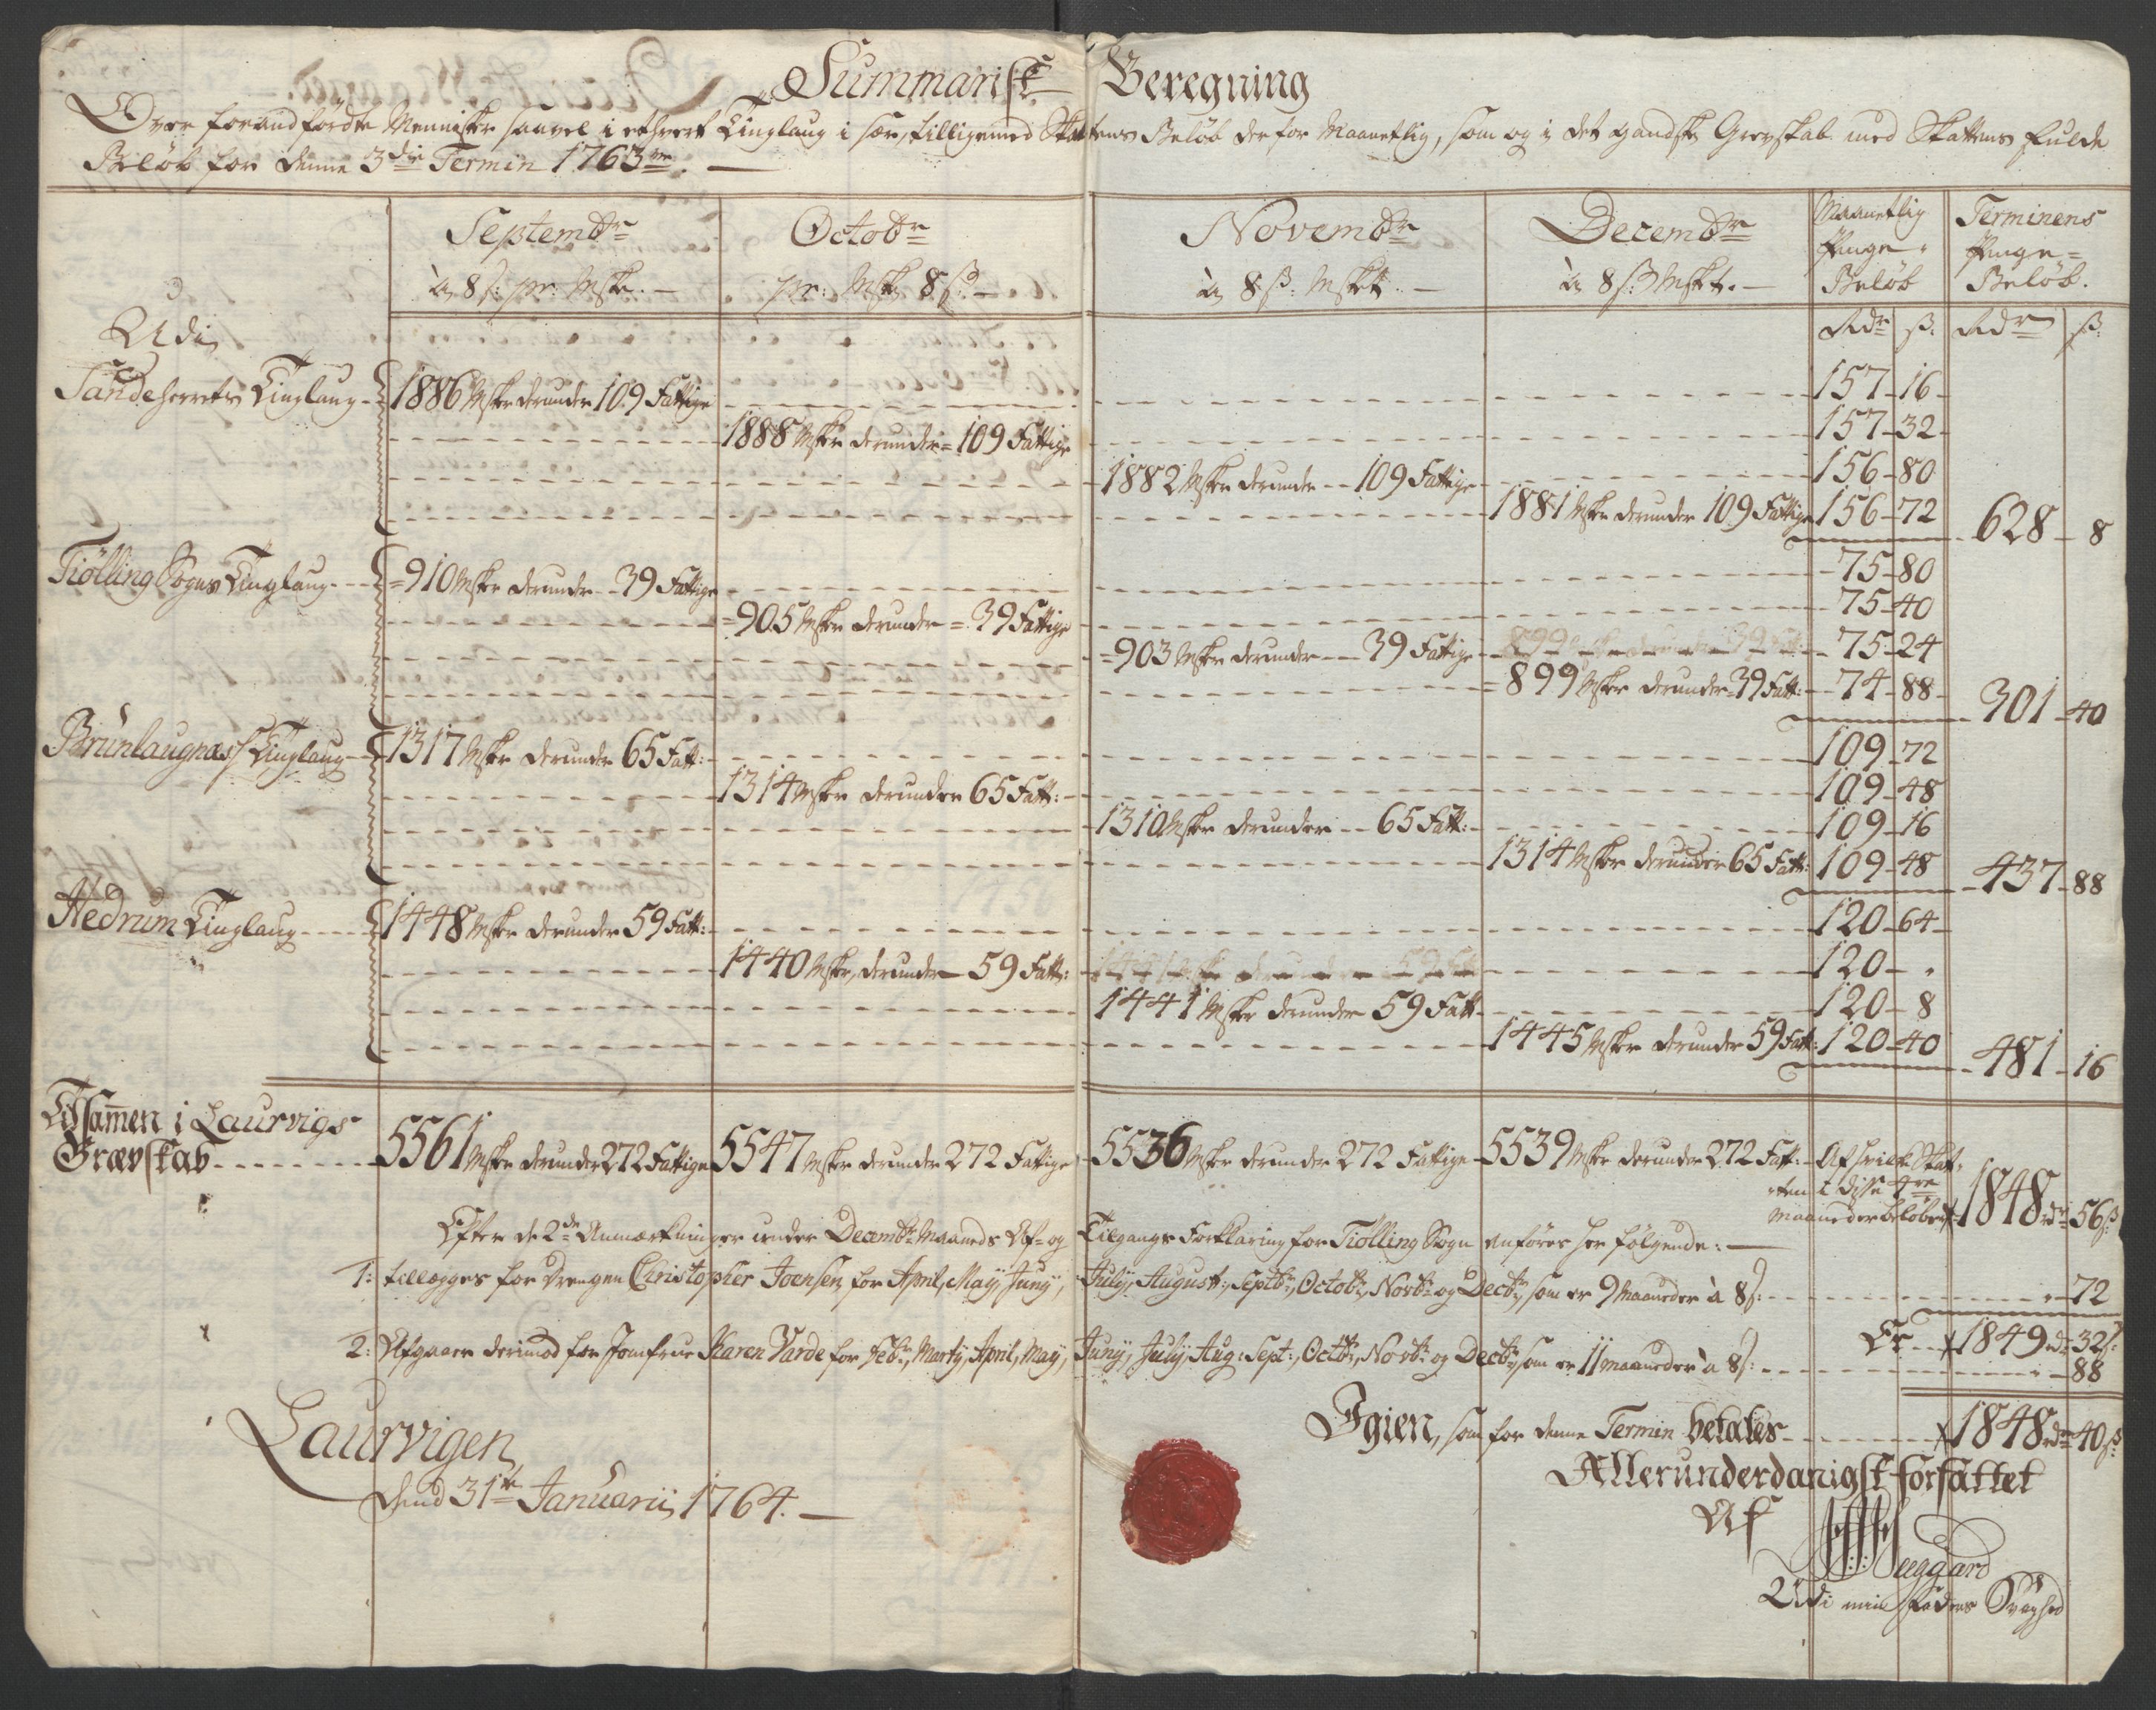 Summarisk Beregning
Over forandførdte Mennisker saavel i ethvert Tinglaug i sær, tilligemed Skattens Beløb derfor Maanetlig, som og i det gandske Grevskab med Skattens fulde
Beløb for denne 3die Termin 1763.
Septembr Octobr Novembr Decembr Maanetlig Penge- Beløb Terminens Penge- Beløb.
à 8 s: pr: Mske. pr: Mske 8 ß. à 8 ß: Mskt. à 8 s: Mskt.
Udi Rdr ß. Rdr ß.
Sandeherrets Tinglaug 1886 Mskr derunder 109 Fattige 157 16
1888 Mskr derunder 109 Fattige 157 32
1882 Mskr derunder 109 Fattige 156 80
1881 Mskr derunder 109 Fattige 156 72 628 8
Tiølling Sogns Tinglaug 910 Mskr derunder 39 Fattige 75 80
905 Mskr derunder 39 Fattige 75 40
903 Mskr derunder 39 Fattige 75 24
899 Mskr derunder 39 Fatt: 74 88 301 40
Brunlaugnæss Tinglaug 1317 Mskr derunder 65 Fatt: 109 72
1314 Mskr derunder 65 Fatt: 109 48
1310 Mskr derunder 65 Fatt: 109 16
1314 Mskr derunder 65 Fatt: 109 48 437 88
Hedrum Tinglaug 1448 Mskr derunder 59 Fatt: 120 64
1440 Mskr, derunder 59 Fatt: 120 -
1441 Mskr derunder 59 Fatt 120 8
1445 Mskr derunder 59 Fatt: 120 40 481 16
Tilsamen i Laurvigs
Grævskab 5561 Mskr derunder 272 Fattige 5547 Mskr derunder 272 Fattige 5536 Mskr derunder 272 Fattige 5539 Mskr derunder 272 Fatt: Af hvilke Skat-
ten i disse 4re
Maaneder beløber 1848 rdr 56 ß
Efter de 2de Anmærkninger under Decembr Maaneds Af- og Tilgangs Forklaring for Tiølling Sogn anføres her følgende:
1: tillægges for Drengen Christopher Joensen for April, May, Juny, July, August, Septbr, Octobr, Novbr og Decbr, som er 9 Maaneder à 8 s: 72
Er 1849 rdr 32 s:
2: Afgaaer derimod for Jomfrue Karen Varde for Febr, Marty, April, May, Juny, July, Aug: Sept:, Octbr, Novbr og Decbr, som er 11 maaneder à 8 s: 88
Igien, som for denne Termin betales 1848 rdr 40 ß
Laurvigen,
dend 31te Januarii 1764.
Allerunderdanigst forfattet
Af
Seggaard
Udi min Faders Svaghed